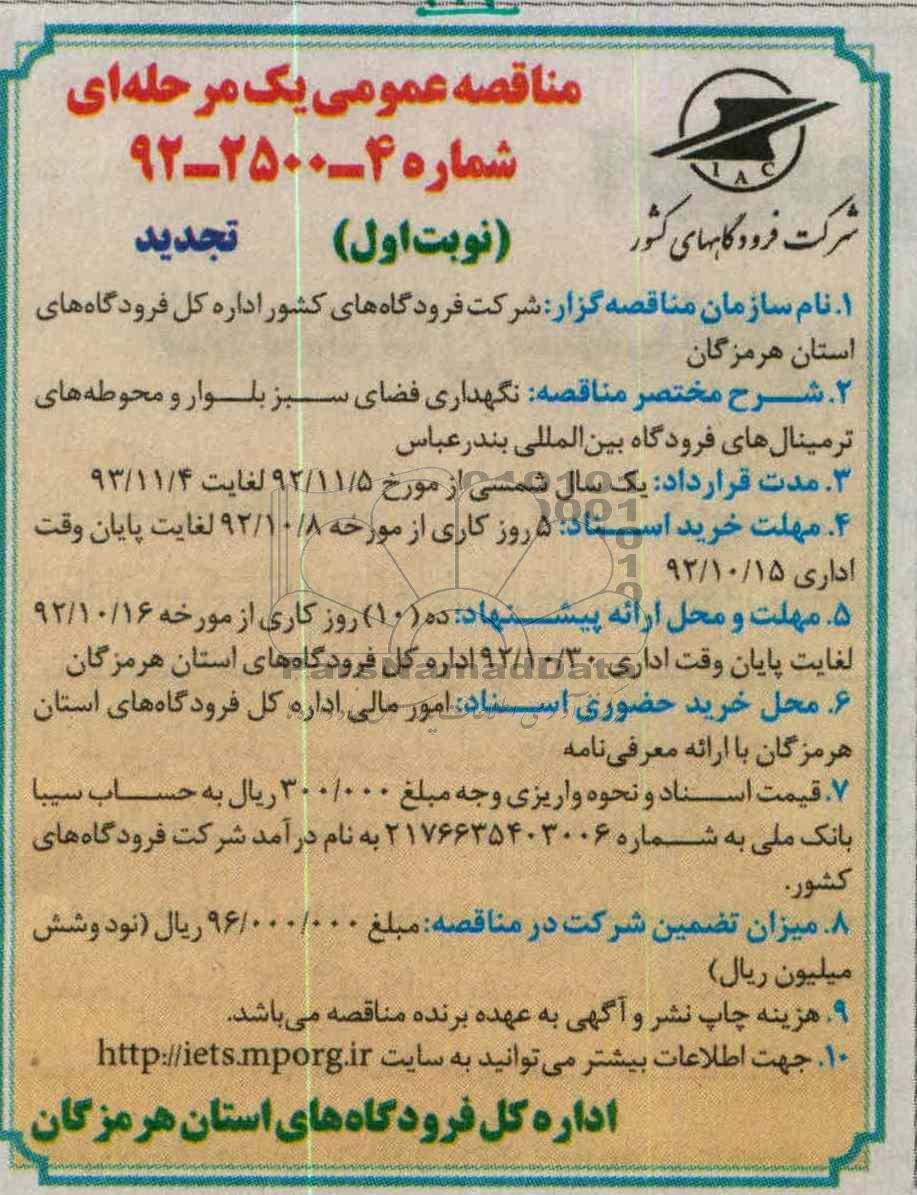 مناقصه عمومی یک مرحله‌ای
شماره ۴-۲۵۰۰-۹۲
IAC
شرکت فرودگاههای کشور
(نوبت اول) تجدید
۱. نام سازمان مناقصه گزار: شرکت فرودگاه‌های کشور اداره کل فرودگاه‌های
استان هرمزگان
۲. شرح مختصر مناقصه: نگهداری فضای سبز بلوار و محوطه‌های
ترمینال‌های فرودگاه بین‌المللی بندرعباس
۳. مدت قرارداد: یک سال شمسی از مورخ ۹۲/۱۱/۵ لغایت ۹۳/۱۱/۴
۴. مهلت خرید اسناد: ۵ روز کاری از مورخه ۹۲/۱۰/۸ لغایت پایان وقت
اداری ۹۲/۱۰/۱۵
۵. مهلت و محل ارائه پیشنهاد: ده (۱۰) روز کاری از مورخه ۹۲/۱۰/۱۶
لغایت پایان وقت اداری ۹۲/۱۰/۳۰ اداره کل فرودگاه‌های استان هرمزگان
ParsNamadData
۶. محل خرید حضوری اسناد: امور مالی اداره کل فرودگاه‌های استان
هرمزگان با ارائه معرفی‌نامه
۷. قیمت اسناد و نحوه واریزی وجه مبلغ ۳۰۰/۰۰۰ ریال به حساب سیبا
بانک ملی به شماره ۲۱۷۶۶۳۵۴۰۳۰۰۶ به نام درآمد شرکت فرودگاه‌های
کشور.
۸. میزان تضمین شرکت در مناقصه: مبلغ ۹۶/۰۰۰/۰۰۰ ریال (نود و شش
میلیون ریال)
۹. هزینه چاپ نشر و آگهی به عهده برنده مناقصه می‌باشد.
۱۰. جهت اطلاعات بیشتر می‌توانید به سایت http://iets.mporg.ir
اداره کل فرودگاه‌های استان هرمزگان